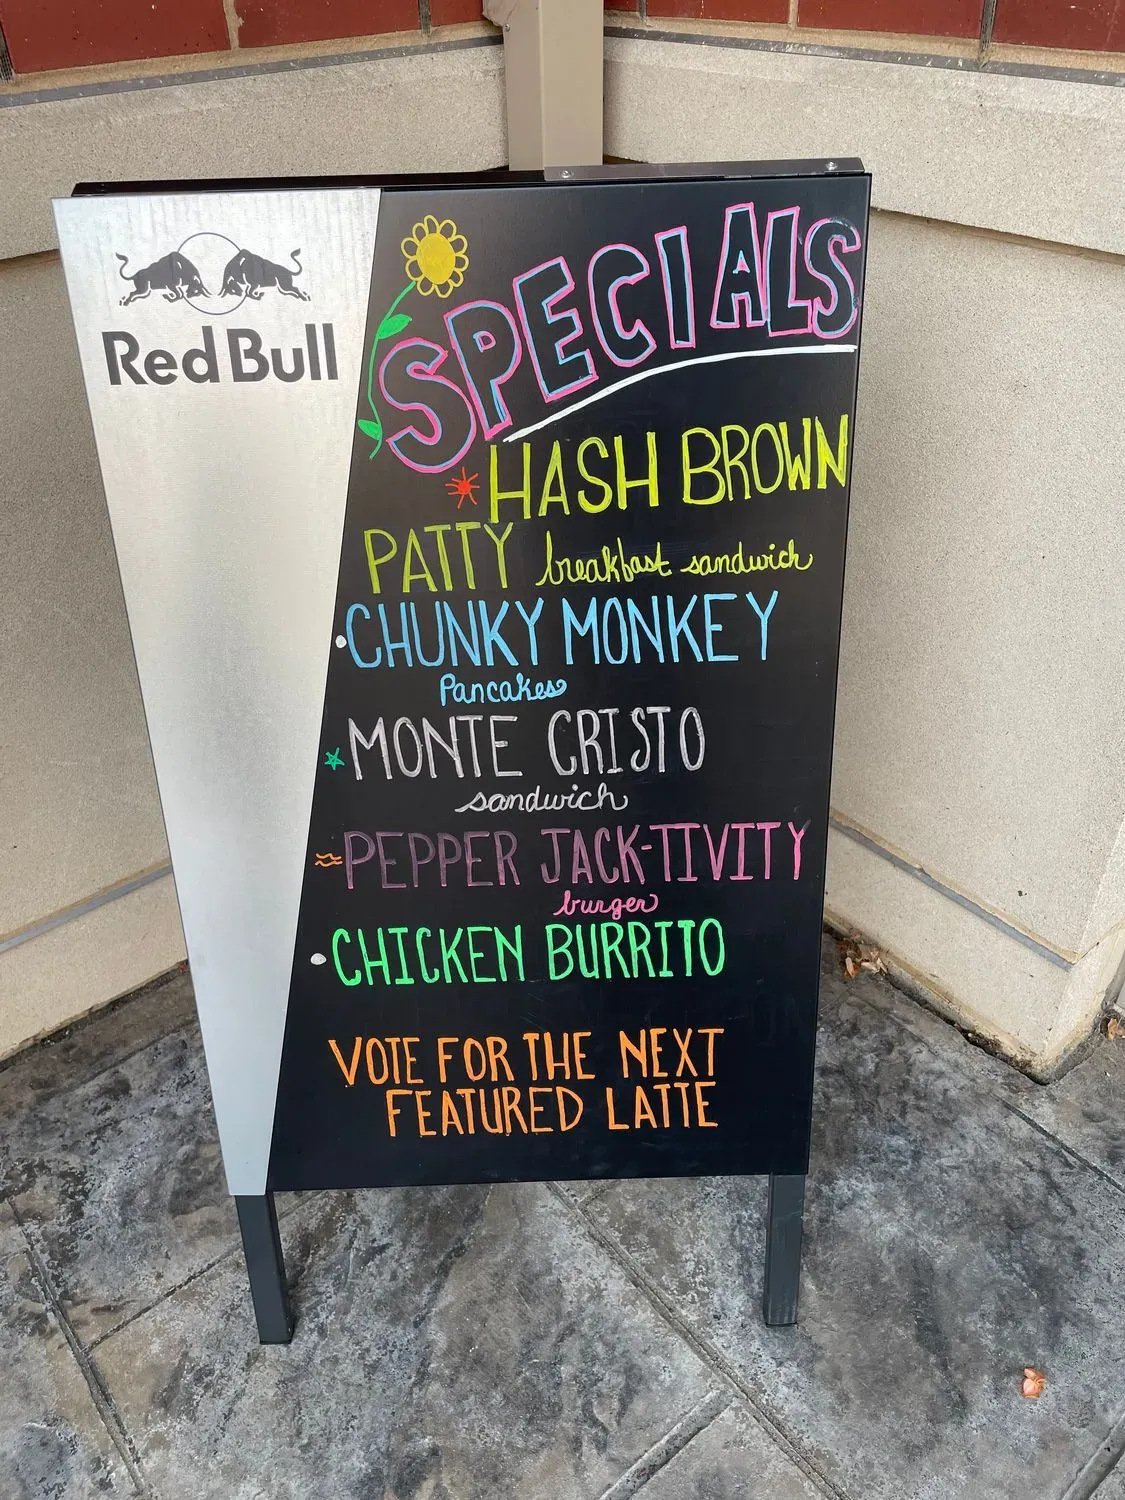 Red Bull
SPECIALS
HASH BROWN
PATTY breakfast sandwich
CHUNKY MONKEY
Pancakes
MONTE CRISTO
sandwich
PEPPER JACK-TIVITY
burger
CHICKEN BURRITO
VOTE FOR THE NEXT
FEATURED LATTE